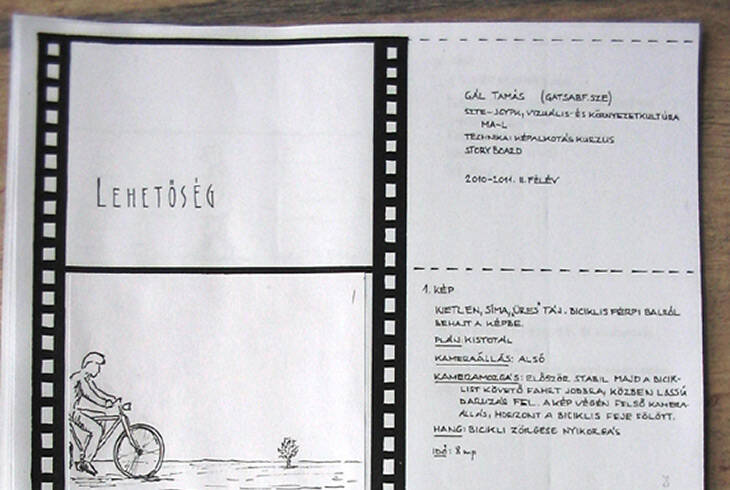 LEHETŐSÉG
GÁL TAMÁS (GATSABF.SZE)
SZTE-JGYPK, VIZUÁLIS- ÉS KÖRNYEZETKULTÚRA
MA-L
TECHNIKAI KÉPALKOTÁS KURZUS
STORY BOARD
2010-2011. II. FÉLÉV
1
1. KÉP
KIETLEN, SÍMA, „ÜRES" TÁJ. BICIKLIS FÉRFI BALRÓL
BEHAJT A KÉPBE.
PLÁN: KISTOTÁL
KAMERAÁLLÁS: ALSÓ
KAMERAMOZGÁS: ELŐSZÖR STABIL MAJD A BICIK-
LIST KÖVETŐ FAHRT JOBBRA, KÖZBEN LASSÚ
DARUZÁS FEL. A KÉP VÉGÉN FELSŐ KAMERA-
ÁLLÁS, HORIZONT A BICIKLIS FEJE FÖLÖTT.
HANG: BICIKLI ZÖRGÉSE NYIKORGÁS
IDŐ: 8 mp